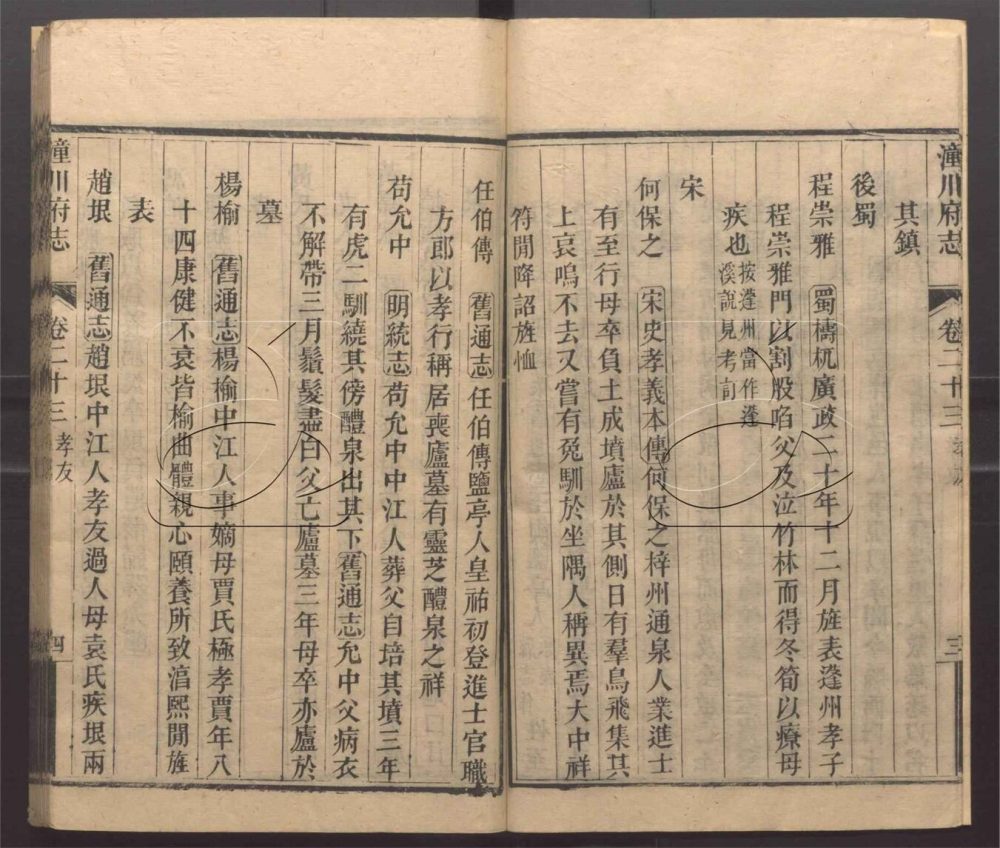 潼川府志 卷二十三 孝友 三
其鎮
後蜀
程崇雅 蜀檮杌廣政二十年十二月旌表蓬州孝子
程崇雅門以割股啗父及泣竹林而得冬筍以療母
疾也按蓬州當作遂
溪說見考訂
宋
何保之 宋史孝義本傳何保之梓州通泉人業進士
有至行母卒負土成墳廬於其側日有羣鳥飛集其
上哀鳴不去又嘗有兔馴於坐隅人稱異焉大中祥
符閒降詔旌恤
任伯傳 舊通志任伯傳鹽亭人皇祐初登進士官職
方郎以孝行稱居喪廬墓有靈芝醴泉之祥
苟允中 明統志苟允中中江人葬父自培其墳三年
有虎二馴繞其傍醴泉出其下舊通志允中父病衣
不解帶三月鬚髮盡白父亡廬墓三年母卒亦廬於
墓
楊榆 舊通志楊榆中江人事嫡母賈氏極孝賈年八
十四康健不衰皆榆曲體親心頤養所致淳熙閒旌
表
趙垠 舊通志趙垠中江人孝友過人母袁氏疾垠兩
潼川府志 卷二十三 孝友 四